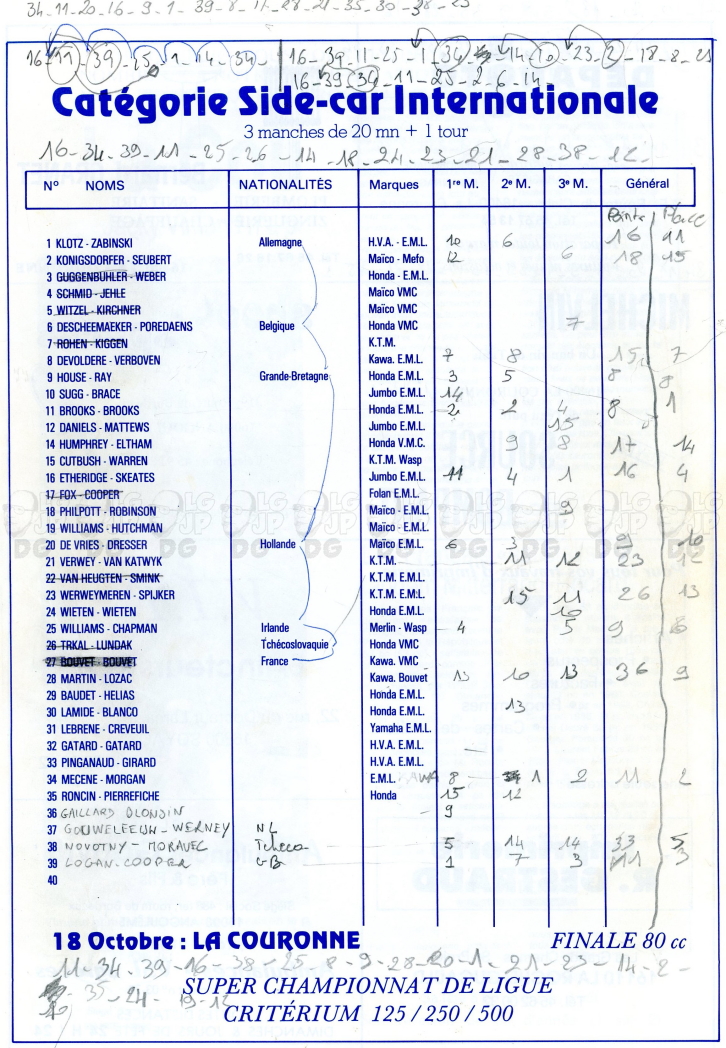 34-11-20-16-9-1-39-8-
16-11-39-25-1-14-34- 16-39-11-25-1-34-14-10-23-2-18-8-21
16-39-34-11-25-2-6-14
Catégorie Side-car Internationale
3 manches de 20 mn + 1 tour
16-34-39-11-25-26-14-18-24-23-21-28-38-12
N° NOMS NATIONALITÉS Marques 1re M. 2e M. 3e M. Général
Points Place
1 KLOTZ - ZABINSKI Allemagne H.V.A. - E.M.L. 10 6 16 11
2 KONIGSDORFER - SEUBERT Maïco - Mefo 12 6 18 15
3 GUGGENBUHLER - WEBER Honda - E.M.L.
4 SCHMID - JEHLE Maïco VMC
5 WITZEL - KIRCHNER Maïco VMC
6 DESCHEEMAEKER - POREDAENS Belgique Honda VMC 7
7 ROHEN - KIGGEN K.T.M.
8 DEVOLDERE - VERBOVEN Kawa. E.M.L. 7 8 15 7
9 HOUSE - RAY Grande-Bretagne Honda E.M.L. 3 5 8 8
10 SUGG - BRACE Jumbo E.M.L. 14
11 BROOKS - BROOKS Honda E.M.L. 2 2 4 8 1
12 DANIELS - MATTEWS Jumbo E.M.L. 15
14 HUMPHREY - ELTHAM Honda V.M.C. 9 8 17 14
15 CUTBUSH - WARREN K.T.M. Wasp
16 ETHERIDGE - SKEATES Jumbo E.M.L. 11 4 1 16 4
17 FOX - COOPER Folan E.M.L.
18 PHILPOTT - ROBINSON Maïco - E.M.L. 9
19 WILLIAMS - HUTCHMAN Maïco - E.M.L.
20 DE VRIES - DRESSER Hollande Maïco E.M.L. 6 3 9 10
21 VERWEY - VAN KATWYK K.T.M. 11 12 23 12
22 VAN HEUGTEN - SMINK K.T.M. E.M.L.
23 WERWEYMEREN - SPIJKER K.T.M. E.M.L. 15 11 26 13
24 WIETEN - WIETEN Honda E.M.L. 10
25 WILLIAMS - CHAPMAN Irlande Merlin - Wasp 4 5 9 6
26 TRKAL - LUNDAK Tchécoslovaquie Honda VMC
27 BOUVET - BOUVET France Kawa. VMC
28 MARTIN - LOZAC Kawa. Bouvet 13 10 13 36 9
29 BAUDET - HELIAS Honda E.M.L.
30 LAMIDE - BLANCO Honda E.M.L. 13
31 LEBRENE - CREVEUIL Yamaha E.M.L.
32 GATARD - GATARD H.V.A. E.M.L.
33 PINGANAUD - GIRARD H.V.A. E.M.L.
34 MECENE - MORGAN E.M.L. KAWA 8 1 2 11 2
35 RONCIN - PIERREFICHE Honda 15 12
36 GAILLARD BLONDIN 9
37 GOUWELEEUW - WERNEY NL
38 NOVOTNY - MORAVEC Tcheco 5 14 14 33 5
39 LOGAN. COOPER GB 1 7 3 11 3
40
18 Octobre : LA COURONNE FINALE 80 cc
11-34-39-16-38-25-8-9-28-20-1-21-23-14-2-
35-24-19-12
SUPER CHAMPIONNAT DE LIGUE
CRITÉRIUM 125 / 250 / 500